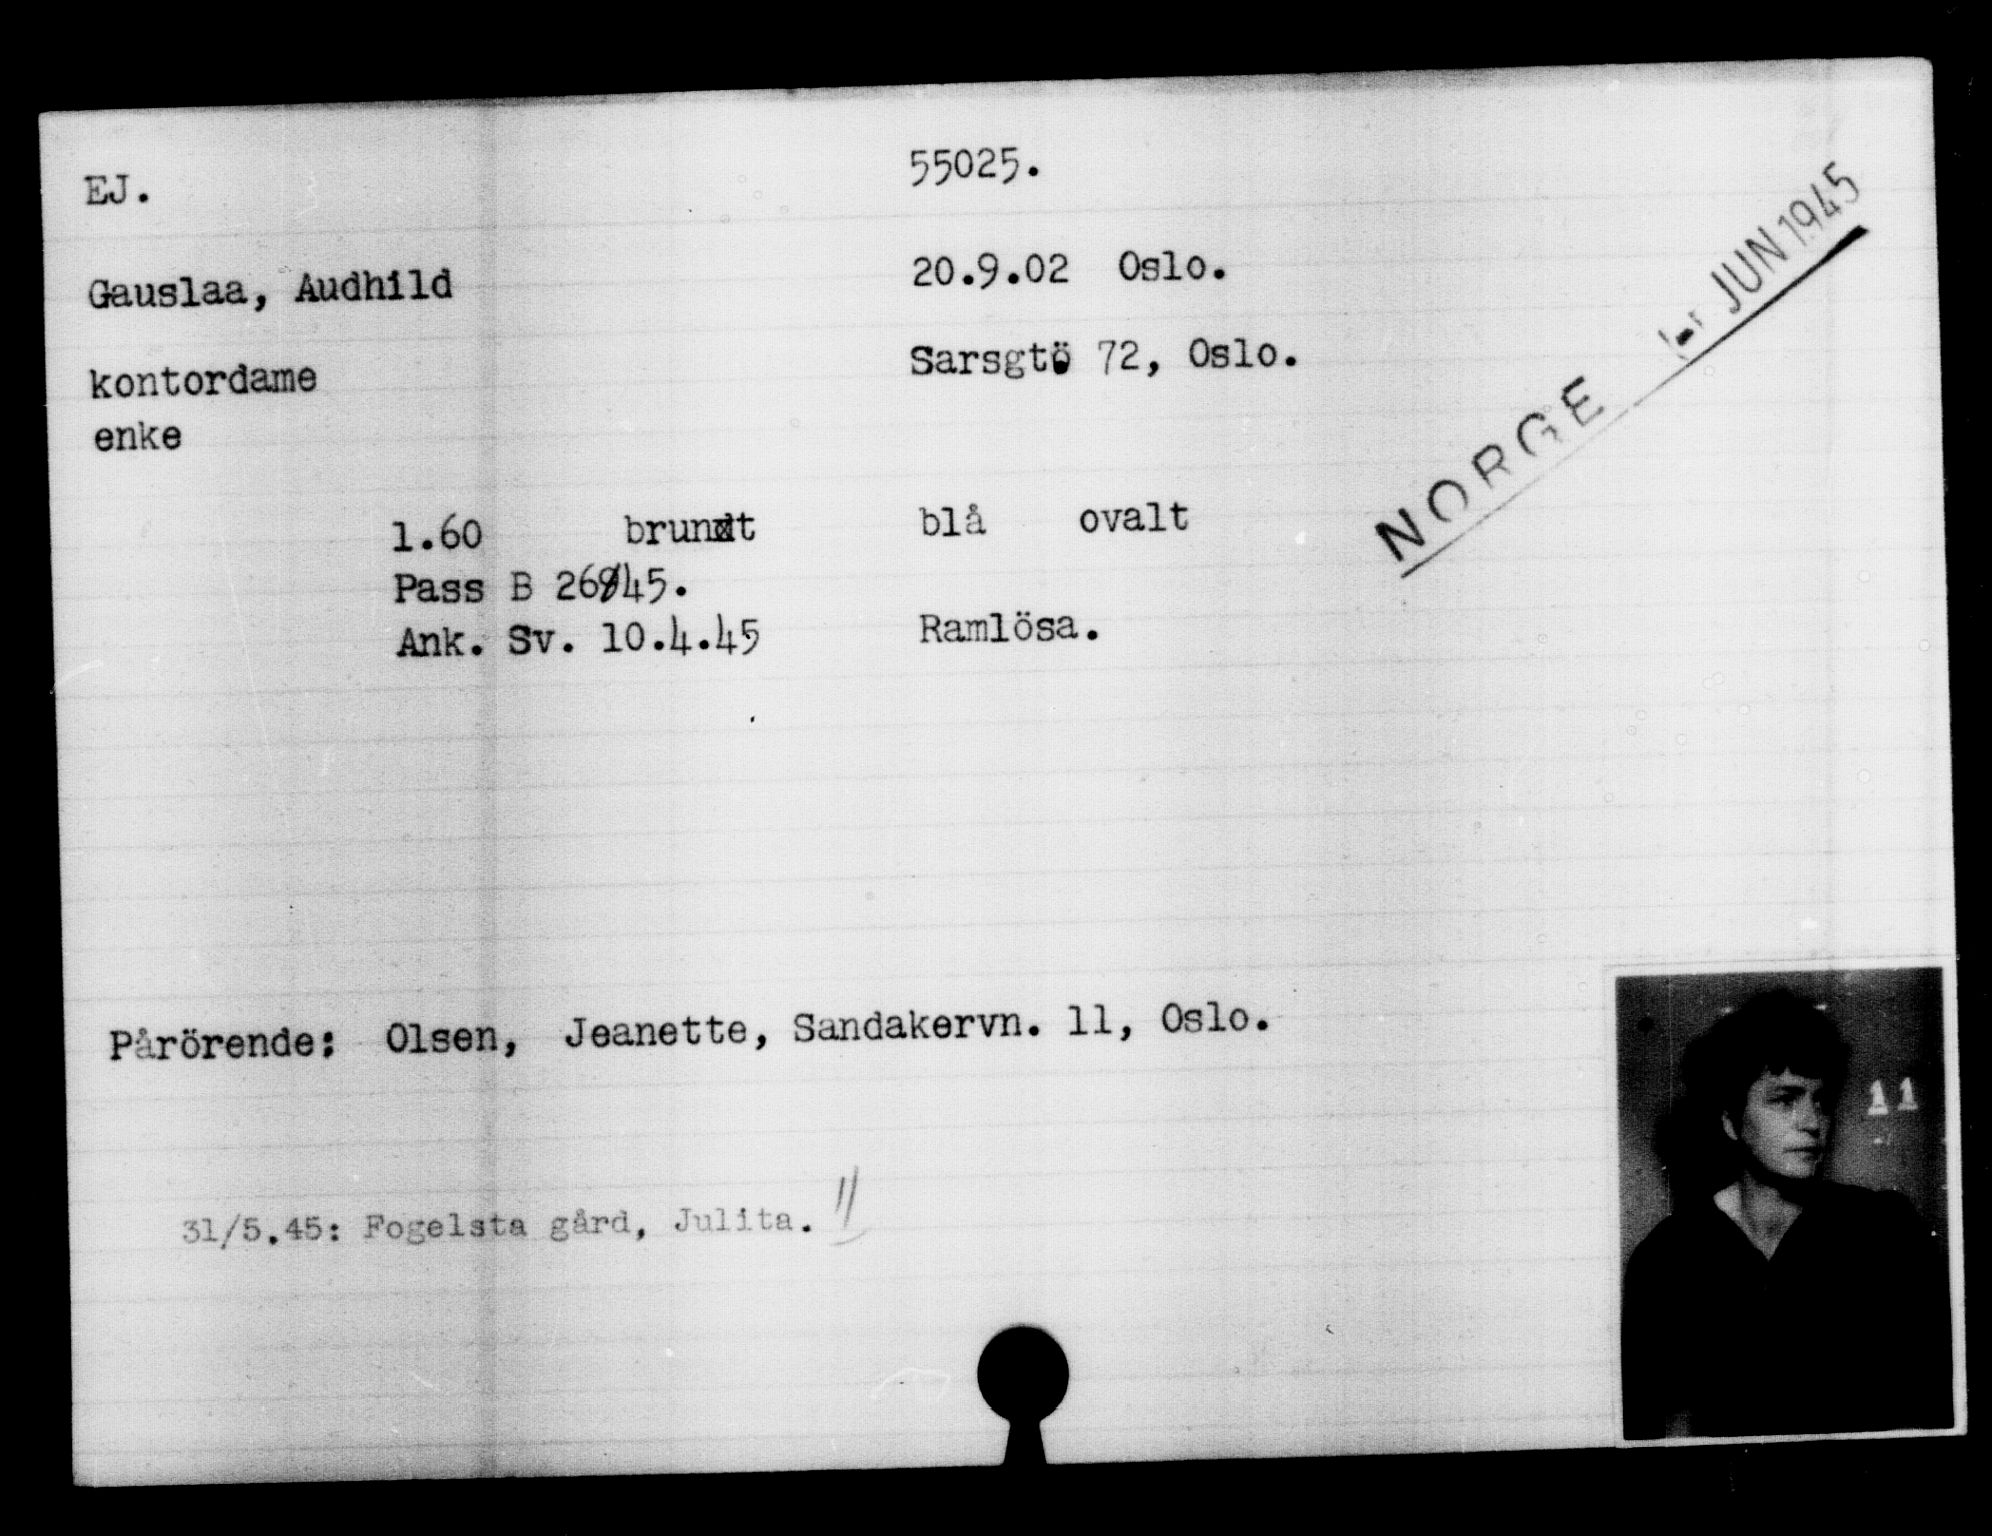 EJ. 55025.
Gauslaa, Audhild 20.9.02 Oslo.
kontordame Sarsgtö 72, Oslo.
enke
NORGE - JUN 1945
1.60 brundt blå ovalt
Pass B 26845.
Ank. Sv. 10.4.45 Ramlösa.
Pårörende: Olsen, Jeanette, Sandakervn. 11, Oslo.
11
31/5.45: Fogelsta gård, Julita.